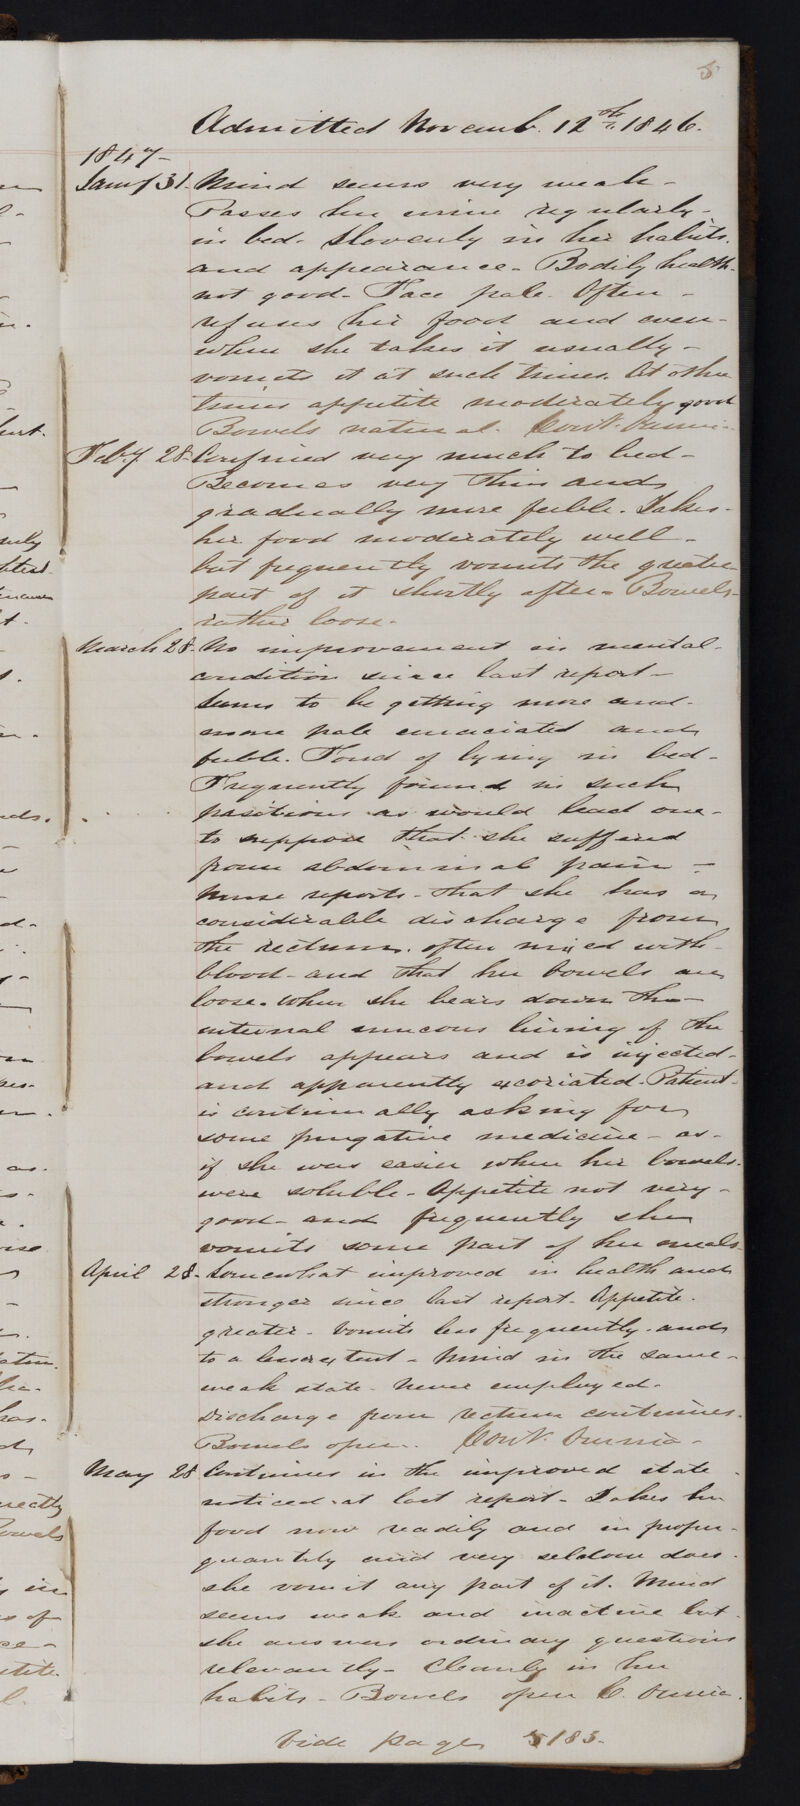 5
Admitted Novemb. 12th 1846.
1847-
Jany 31. Mind seems very weak-
Passes her urine regularly-
in bed. Slovenly in her habits.
and appearance - Bodily health-
not good - Face pale. Often -
refuses her food and even-
when she takes it usually-
vomits it at such times. At other
times appetite moderately good
Bowels natural. Cont. Omnia-
Feby 28- Confined very much to bed-
Becomes very thin and
gradually more feeble. Takes-
her food moderately well-
but frequently vomits the greater
part of it shortly after- Bowels-
rather loose-
March 28- No improvement in mental-
condition since last report-
Seems to be getting more and-
more pale emaciated and
feeble. Fond of lying in bed-
Frequently found in such
positions as would lead one-
to suppose that she suffered
from abdominal pain -
Nurse reports- that she has a
considerable discharge from
the rectum. often mixed with-
blood - and that her bowels are
loose. When she bears down the-
internal mucous lining of the
bowels appears and is injected-
and apparently excoriated- Patient-
is continually asking for
some purgative medicine - as-
if she was easier when her bowels-
were soluble- Appetite not very-
good - and frequently she
vomits some part of her meals
April 28- Somewhat improved in health and
stronger since last report. Appetite.
greater- Vomits less frequently. and
to a less extent - Mind in the same-
weak state- Never employed-
Discharge from rectum continues.
Bowels open. Cont. Omnia-
May 28 Continues in the improved state
noticed at last report- Takes her
food now readily and in proper-
quantity and very seldom does-
she vomit any part of it. Mind
seems weak and inactive but-
she answers ordinary questions
relevantly- Cleanly in her
habits - Bowels open C. Omnia.
Vide page 5183-